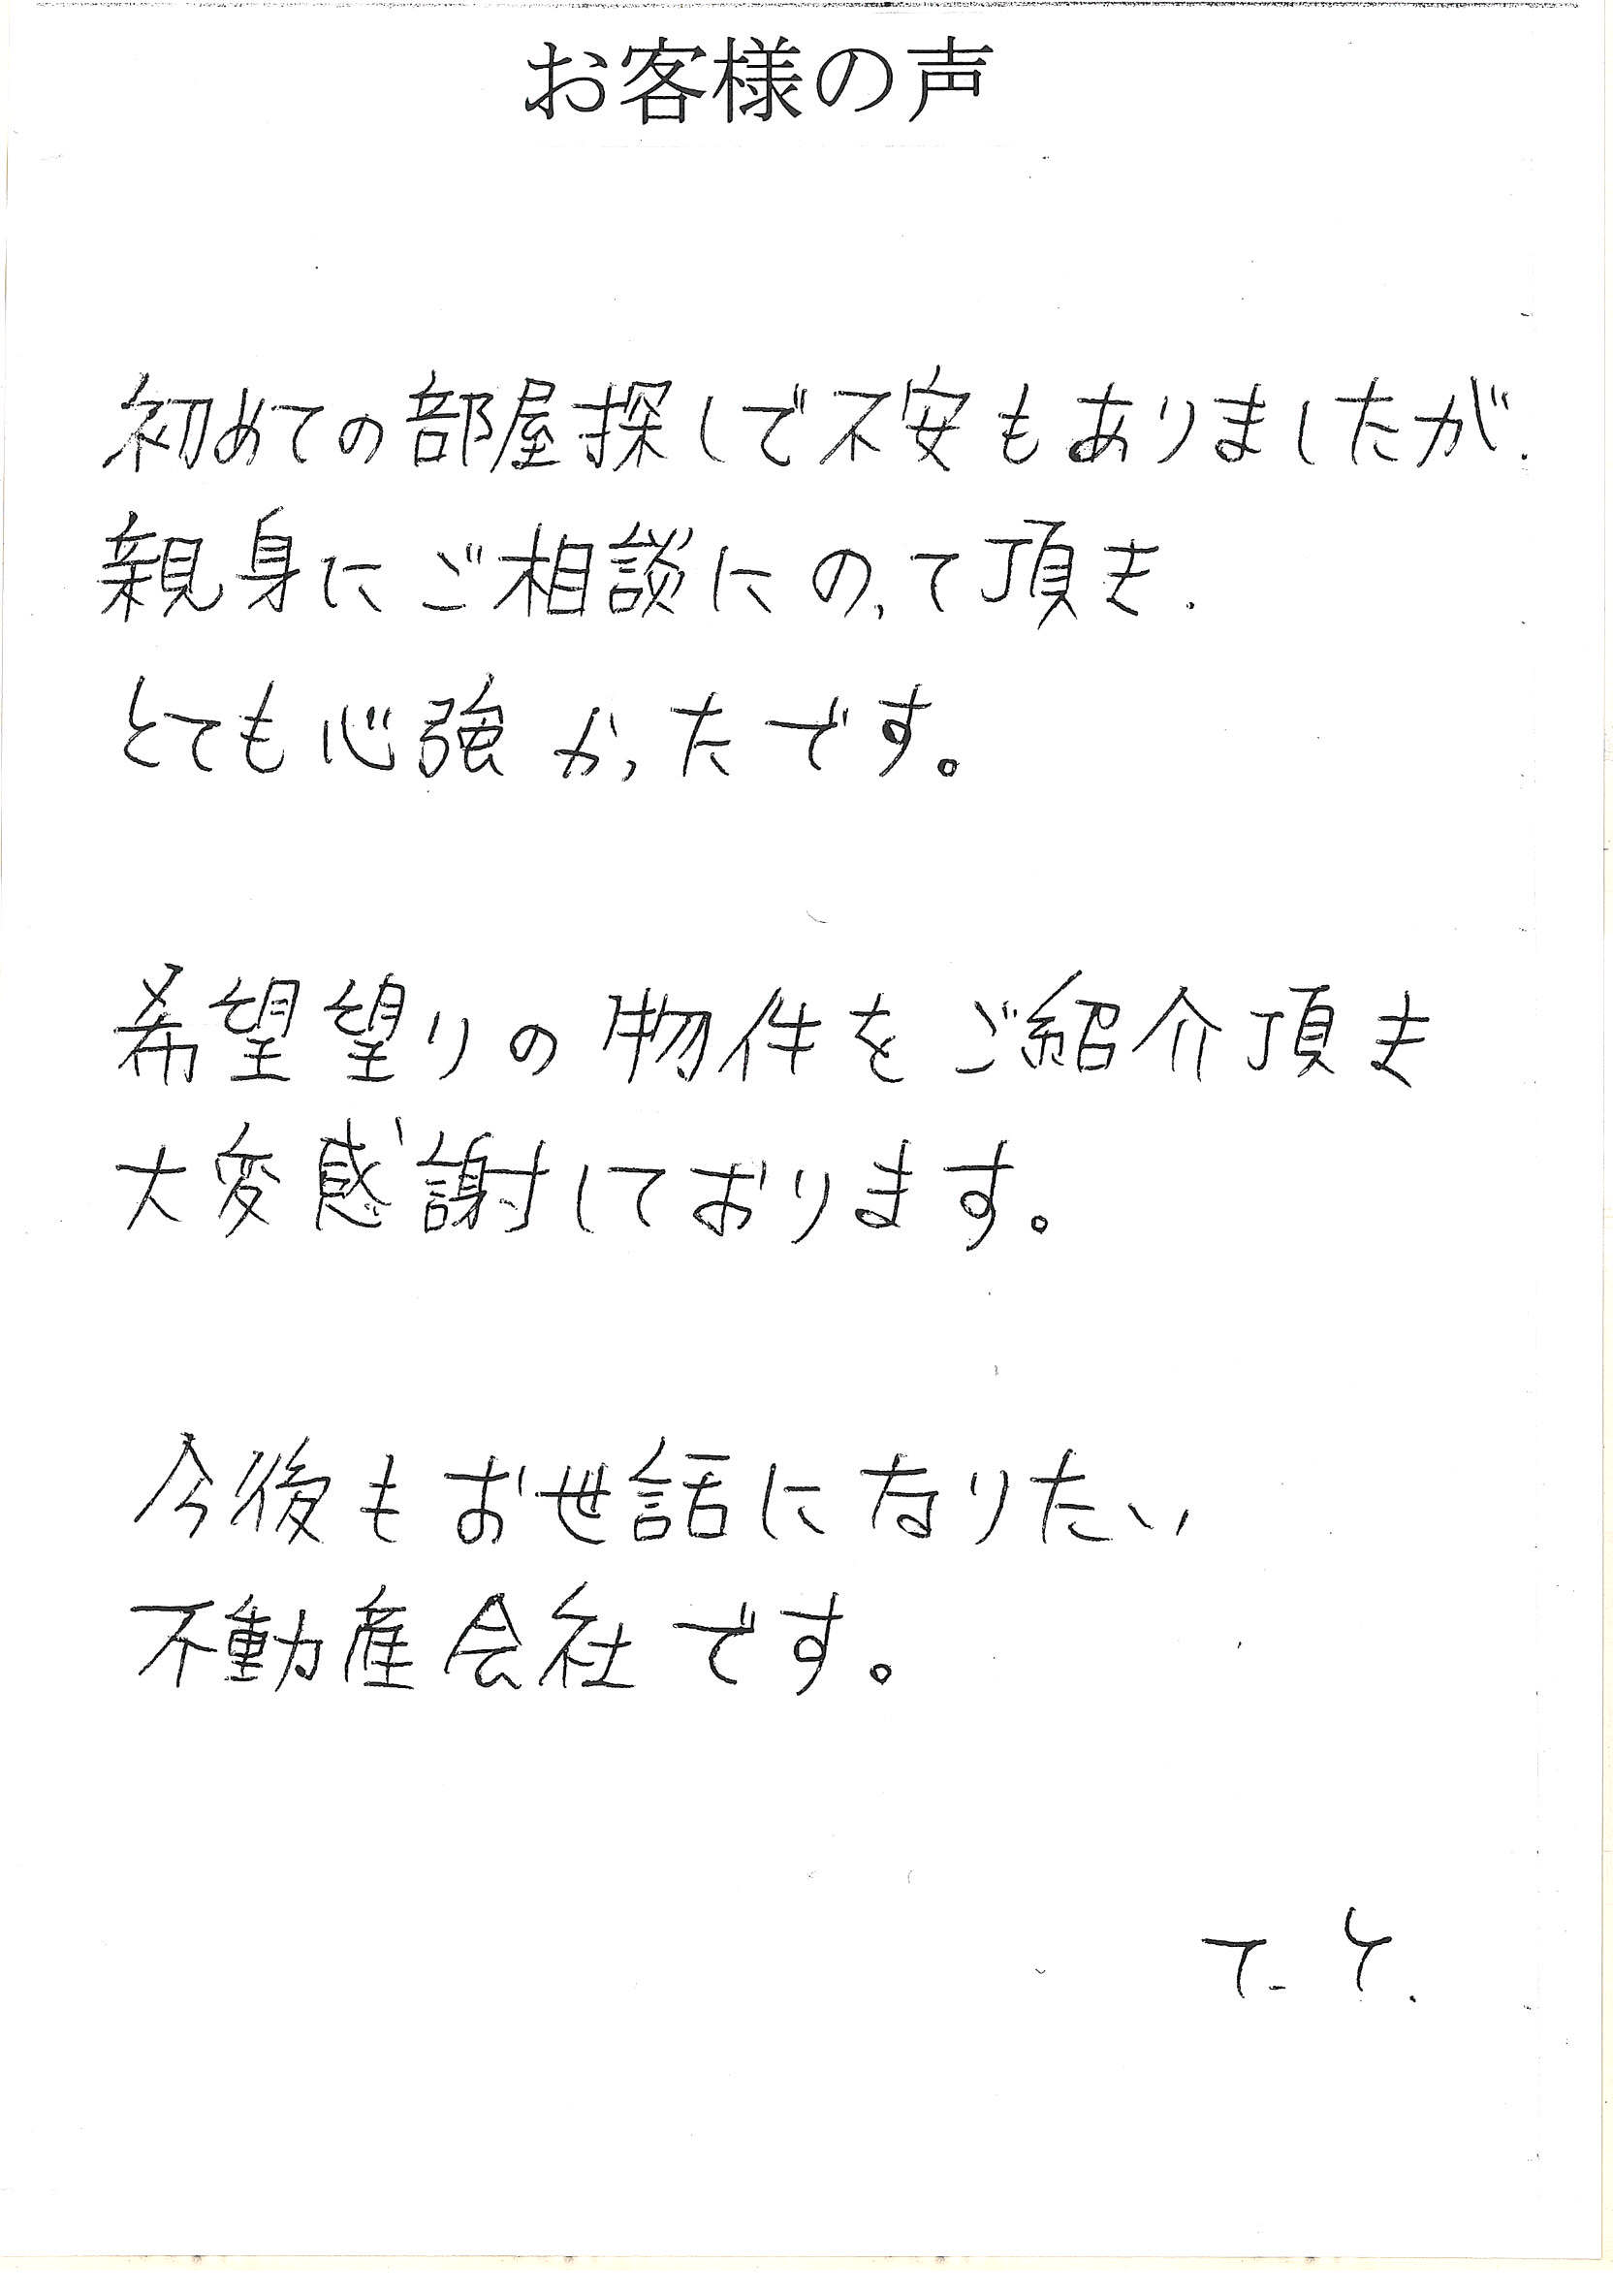 お客様の声
初めての部屋探しで不安もありましたが、
親身にご相談にのって頂き、
とても心強かったです。
希望望りの物件をご紹介頂き
大変感謝しております。
今後もお世話になりたい
不動産会社です。
T. Y.